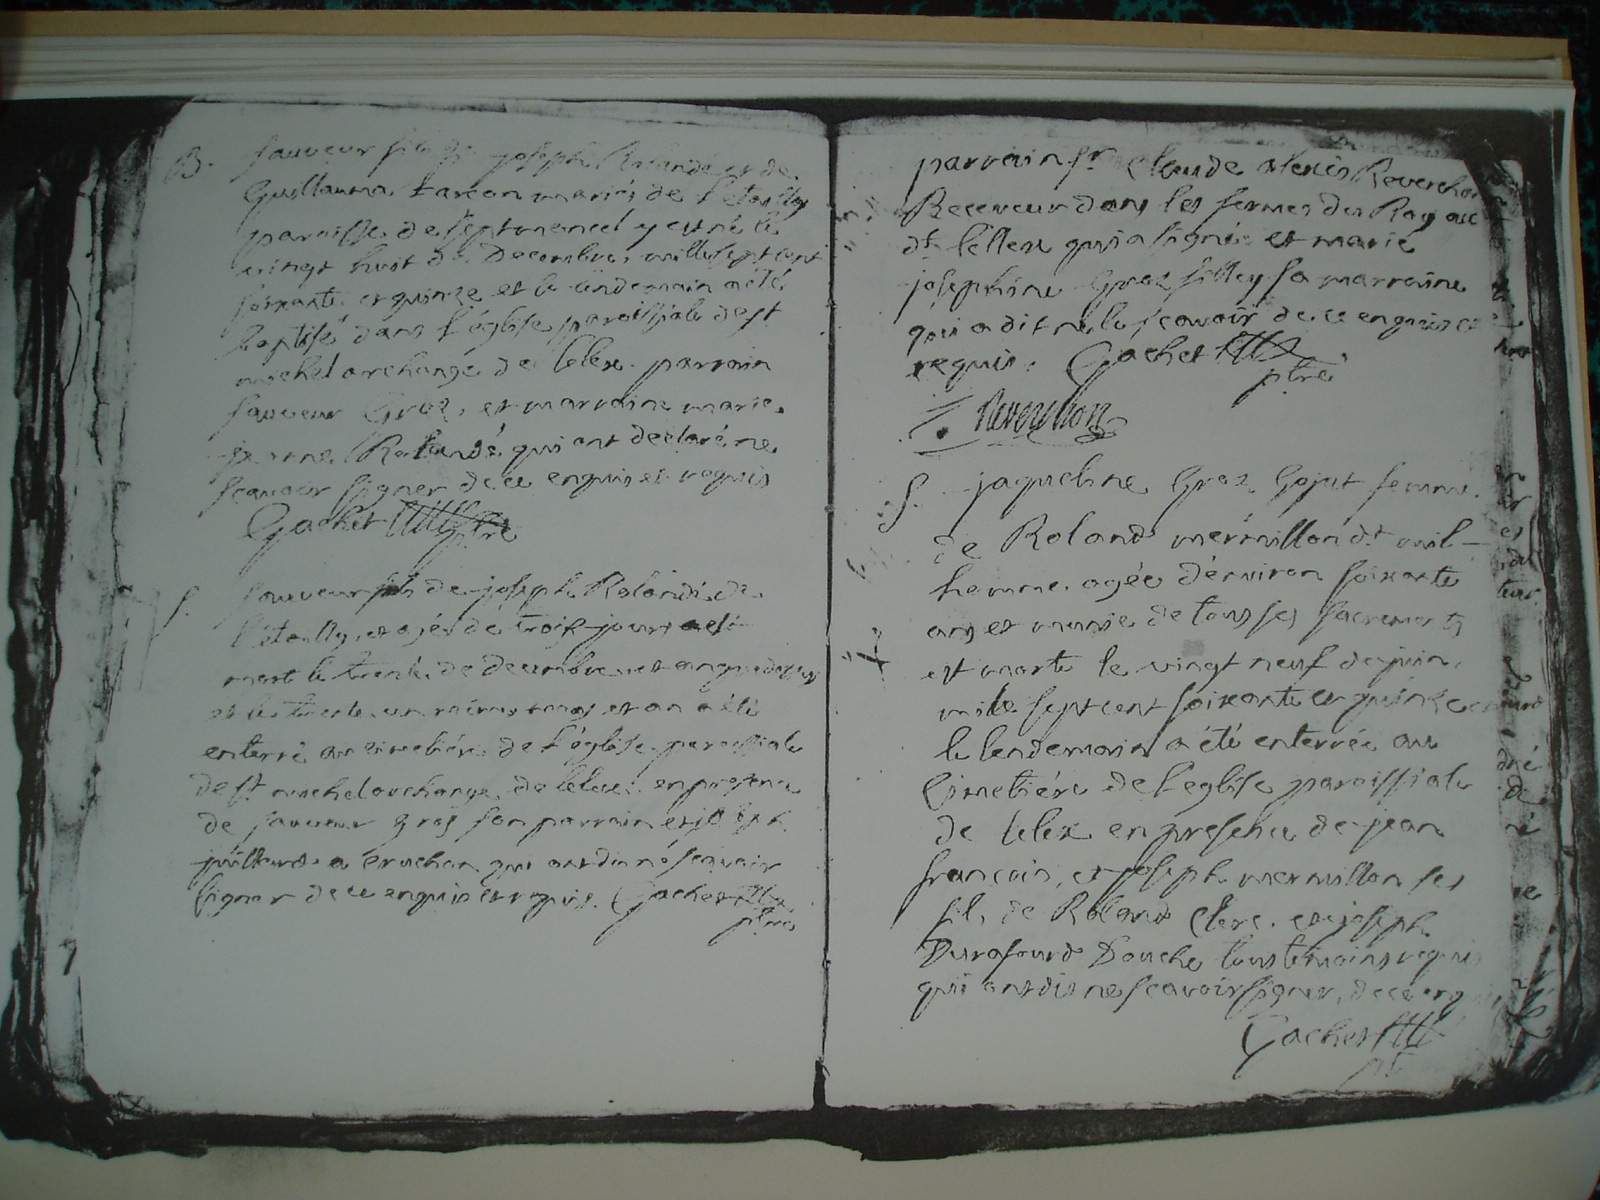 B. Sauveur fils de joseph Rolandé et de
Guillauma tarcon mariés de l'étolly
paroisse de septmoncel y est né le
vingt huit de Decembre mille sept cent
soixante et quinze et le lendemain a été
baptisé dans l'église paroissiale de st
michel archange de lelex. parrain
sauveur Groz, et marraine marie
Rolandé qui ont declaré ne
scavoir signer de ce enquis et requis
Gachet ptre
S. Sauveur fils de joseph Rolandé de
l'étolly, et agé de trois jours est
mort le trente de decembre
et le trente un a été
enterré au cimetière de l'église paroissiale
de st michel archange de lelex en presence
de sauveur groz son parrain et joseph
qui ont dit ne scavoir
signer de ce enquis et requis. Gachet
ptre
parrain sr. Claude alexis Reverchon
Receveur dans les fermes du Roy au
dt lellex qui a signé et marie
josephine Groz filley sa marraine
qui a dit ne le scavoir de ce enquis et
requis. Gachet
ptre
Reverchon
S. jaqueline Groz Gojat femme
de Roland mermillon dt mil-
homme agée d'environ soixante
ans et munie de tous ses sacrements
est morte le vingt neuf de juin
mile sept cent soixante en quinze
le lendemain a été enterrée au
Cimetière de l'eglise paroissiale
de lelex en presence de jean
françois, et joseph mermillon ses
fils, de Roland Clerc. et joseph
Durafourd Douche tous temoins requis
qui ont dit ne scavoir signer, de ce enquis
Gachet